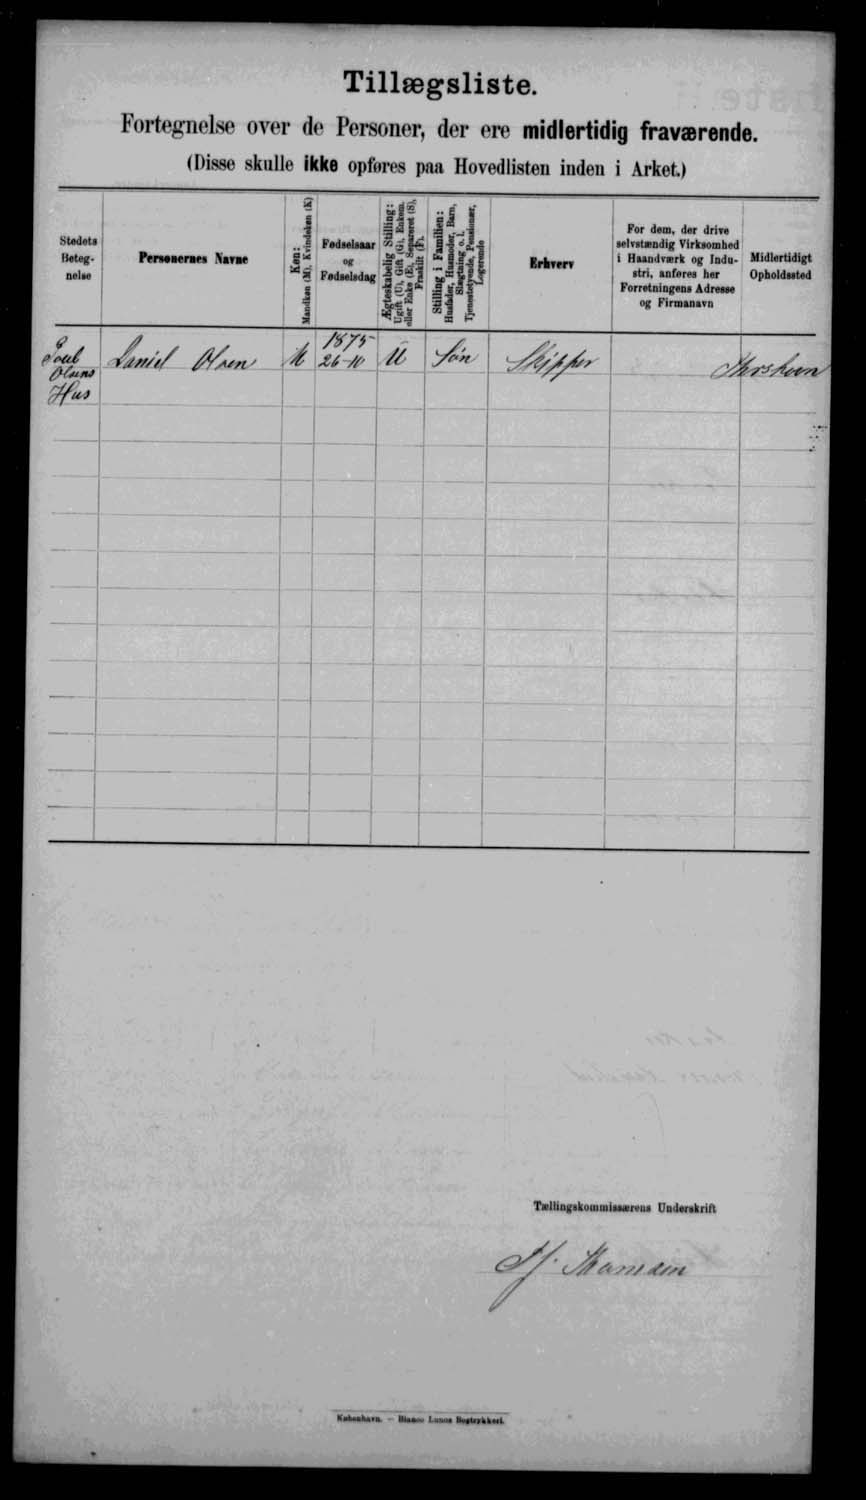 Tillægsliste.
Fortegnelse over de Personer, der ere midlertidig fraværende.
(Disse skulle ikke opføres paa Hovedlisten inden i Arket.)
Stedets
Beteg-
nelse
Personernes Navne
Køn:
Mandkøn (M), Kvindekøn (K)
Fødselsaar
og
Fødselsdag
Ægteskabelig Stilling:
Ugift (U), Gift (G), Enkem.
eller Enke (E), Separeret (S),
Fraskilt (F).
Stilling i Familien:
Husfader, Husmoder, Barn,
Slægtning o. l.
Tjenestetyende, Pensionær,
Logerende
Erhverv
For dem, der drive
selvstændig Virksomhed
i Haandværk og Indu-
stri, anføres her
Forretningens Adresse
og Firmanavn
Midlertidigt
Opholdssted
Poul
Olsens
Hus
Daniel Olsen
M
1875
26-10
U
Søn
Skipper
Thorshavn
Tællingskommissærens Underskrift
København. — Bianco Lunos Bogtrykkeri.